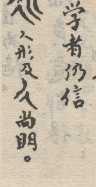 学者仍信
人形及人尚明。